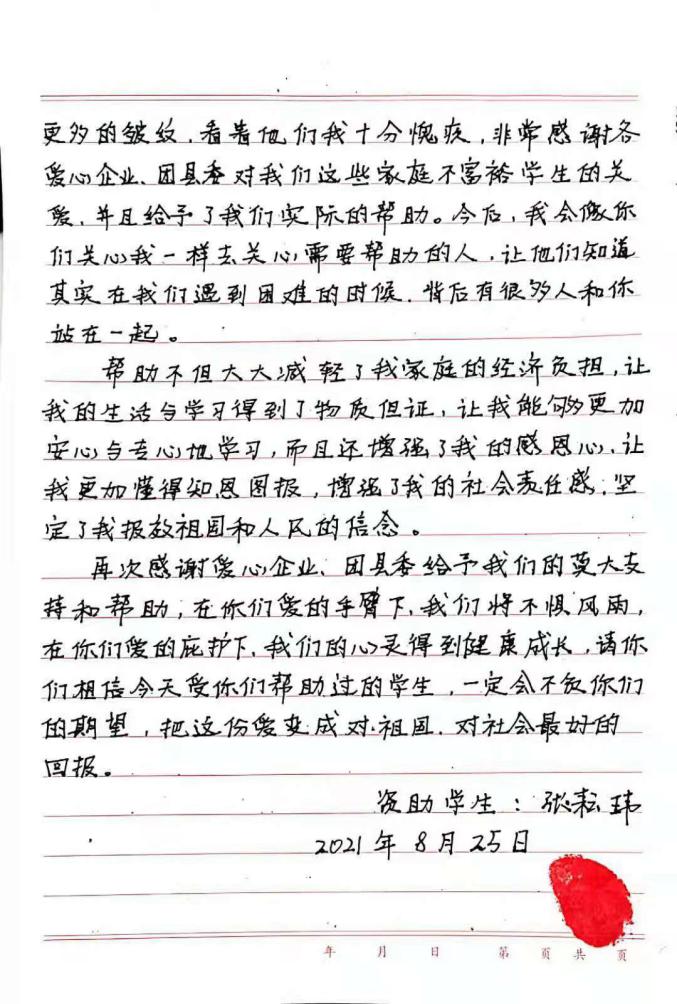 更多的皱纹，看着他们我十分愧疚，非常感谢各
爱心企业、团县委对我们这些家庭不富裕学生的关
爱，并且给予了我们实际的帮助。今后，我会像你
们关心我一样去关心需要帮助的人，让他们知道
其实在我们遇到困难的时候，背后有很多人和你
站在一起。
帮助不但大大减轻了我家庭的经济负担，让
我的生活与学习得到了物质保证，让我能够更加
安心与专心地学习，而且还增强了我的感恩心，让
我更加懂得知恩图报，增强了我的社会责任感，坚
定了我报效祖国和人民的信念。
再次感谢爱心企业、团县委给予我们的莫大支
持和帮助，在你们爱的手臂下，我们将不惧风雨，
在你们爱的庇护下，我们的心灵得到健康成长，请你
们相信今天受你们帮助过的学生，一定会不负你们
的期望，把这份爱变成对祖国、对社会最好的
回报。
资助学生：张耘玮
2021年8月25日
年 月 日 第 页 共 页